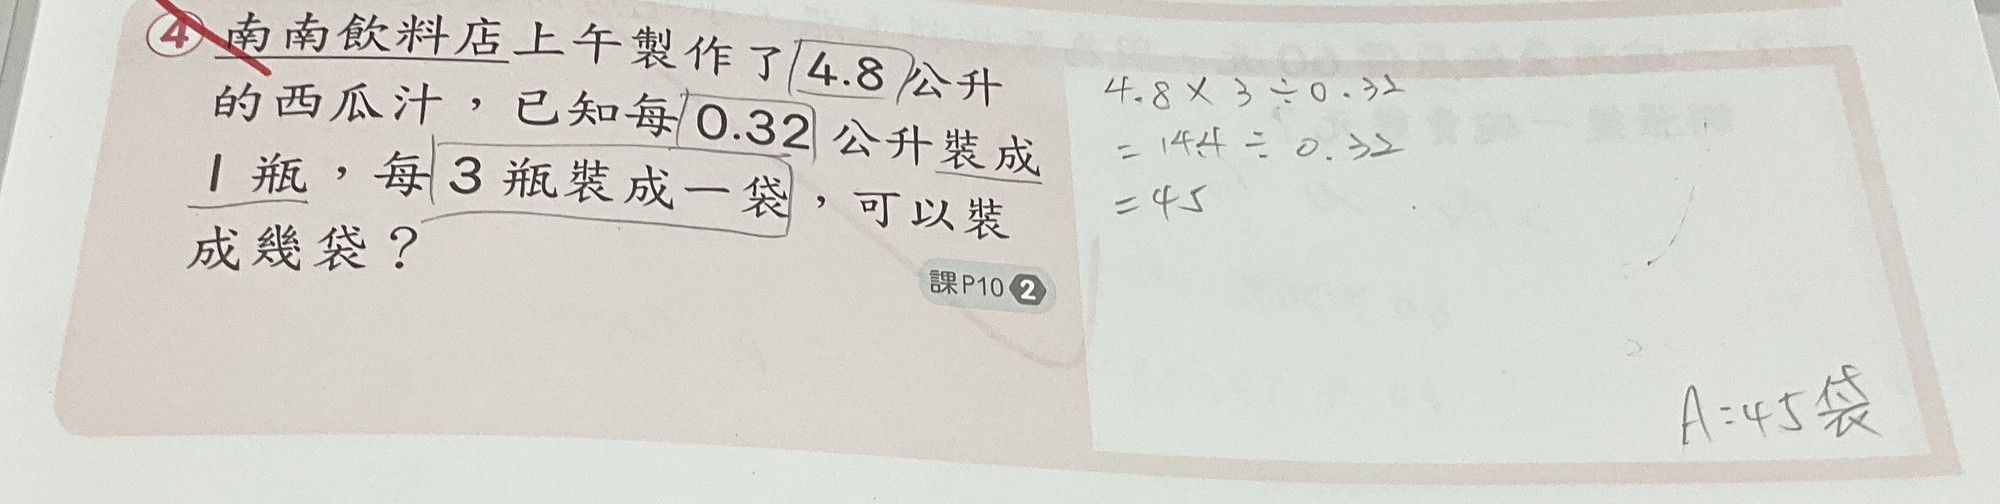 ④ 南南飲料店上午製作了4.8公升
的西瓜汁，已知每0.32公升裝成
1瓶，每3瓶裝成一袋，可以裝
成幾袋？
課P10 2
4.8×3÷0.32
=14.4÷0.32
=45
A=45袋